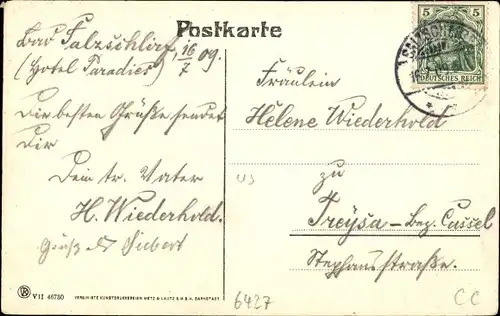 Postkarte
Bad Salzschlirf, 16/7 09.
(Hotel Paradies)
Die besten Grüße sendet
Dir
Dein tr. Vater
H. Wiederhold.
Gruß
Siebert
5 5
DEUTSCHES REICH
Fräulein
Helene Wiederhold
zu
Treysa - Bez. Cassel
Stephansstraße.
VII 46780
VEREINIGTE KUNSTDRUCKEREIEN METZ & LAUTZ G.M.B.H. DARMSTADT
6427
CC